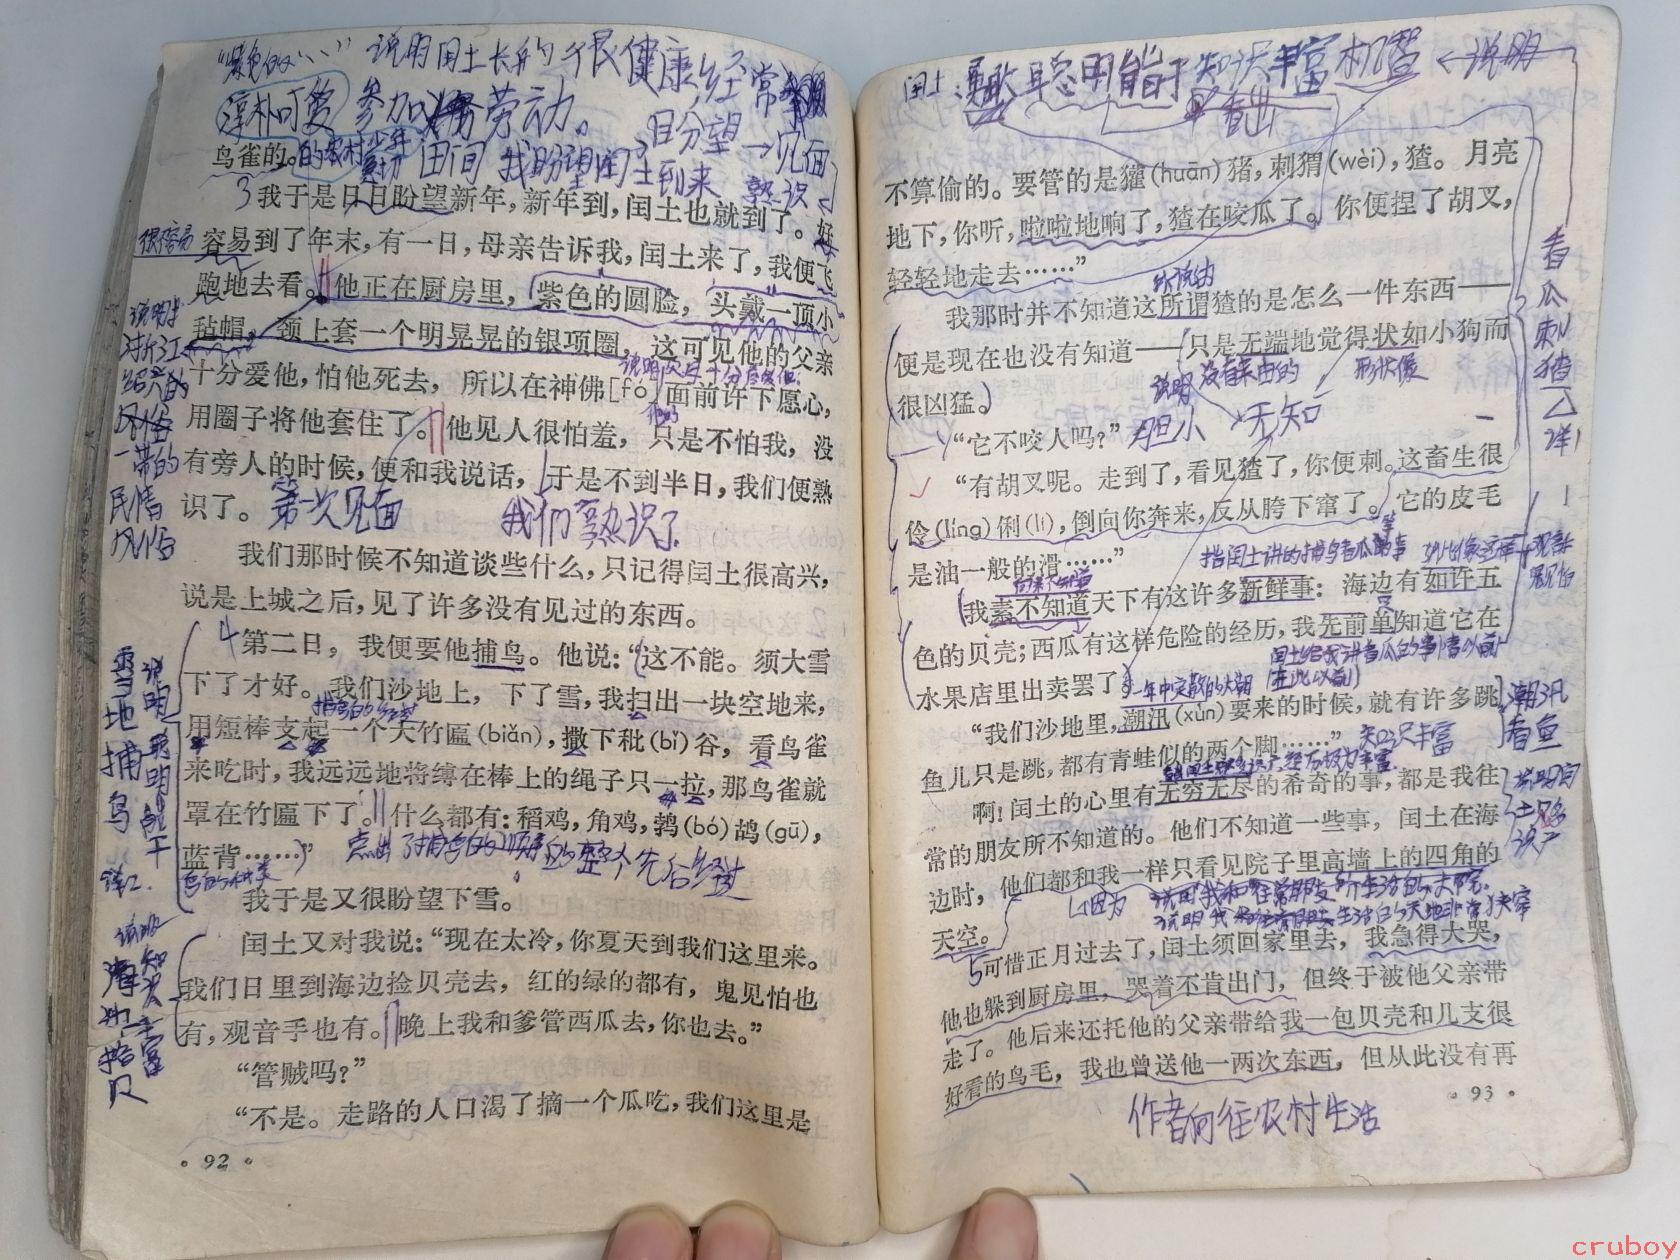 说明闰土长的很健康,经常
淳朴可爱 参加劳动。
鸟雀的。
的农村少年
田间 我盼望闰土到来
盼望→见面
熟识
3我于是日日盼望新年,新年到,闰土也就到了。好
很容易
容易到了年末,有一日,母亲告诉我,闰土来了,我便飞
跑地去看。他正在厨房里,紫色的圆脸,头戴一顶小
毡帽,颈上套一个明晃晃的银项圈,这可见他的父亲
十分爱他,怕他死去,所以在神佛[fó]面前许下愿心,
用圈子将他套住了。他见人很怕羞,只是不怕我,没
有旁人的时候,便和我说话,于是不到半日,我们便熟
识了。
第一次见面 我们熟识了
一带的
民情
风俗
我们那时候不知道谈些什么,只记得闰土很高兴,
说是上城之后,见了许多没有见过的东西。
4第二日,我便要他捕鸟。他说:“这不能。须大雪
下了才好。我们沙地上,下了雪,我扫出一块空地来,
用短棒支起一个大竹匾(biǎn),撒下秕(bǐ)谷,看鸟雀
来吃时,我远远地将缚在棒上的绳子只一拉,那鸟雀就
罩在竹匾下了。什么都有:稻鸡,角鸡,鹁(bó)鸪(gū),
蓝背……”
点出了捕鸟的顺序的整个先后经过
鸟的种类
雪地捕鸟
说明聪明能干
我于是又很盼望下雪。
闰土又对我说:“现在太冷,你夏天到我们这里来。
我们日里到海边捡贝壳去,红的绿的都有,鬼见怕也
有,观音手也有。晚上我和爹管西瓜去,你也去。”
说明
知识丰富
海边拾贝
“管贼吗?”
“不是。走路的人口渴了摘一个瓜吃,我们这里是
·92·
闰土:勇敢聪明能干知识丰富机智←说明
看出
不算偷的。要管的是獾(huān)猪,刺猬(wèi),猹。月亮
地下,你听,啦啦地响了,猹在咬瓜了。你便捏了胡叉,
轻轻地走去……”
所说的
我那时并不知道这所谓猹的是怎么一件东西——
便是现在也没有知道——只是无端地觉得状如小狗而
很凶猛。
说明 没有来由的 形状像
“它不咬人吗?”
胆小 无知
“有胡叉呢。走到了,看见猹了,你便刺。这畜生很
伶(líng)俐(lì),倒向你奔来,反从胯下窜了。它的皮毛
是油一般的滑……”
看瓜刺猹
详
指闰土讲的捕鸟看瓜等事
我素不知道天下有这许多新鲜事:海边有如许五
色的贝壳;西瓜有这样危险的经历,我先前单知道它在
水果店里出卖罢了。
闰土给我讲看瓜的事情以前
(在此以前)
“我们沙地里,潮汛(xùn)要来的时候,就有许多跳
鱼儿只是跳,都有青蛙似的两个脚……”
知识丰富
潮汛看鱼
啊!闰土的心里有无穷无尽的希奇的事,都是我往
常的朋友所不知道的。他们不知道一些事,闰土在海
边时,他们都和我一样只看见院子里高墙上的四角的
天空。
因为
5可惜正月过去了,闰土须回家里去,我急得大哭,
他也躲到厨房里,哭着不肯出门,但终于被他父亲带
走了。他后来还托他的父亲带给我一包贝壳和几支很
好看的鸟毛,我也曾送他一两次东西,但从此没有再
·93·
作者向往农村生活
cruboy